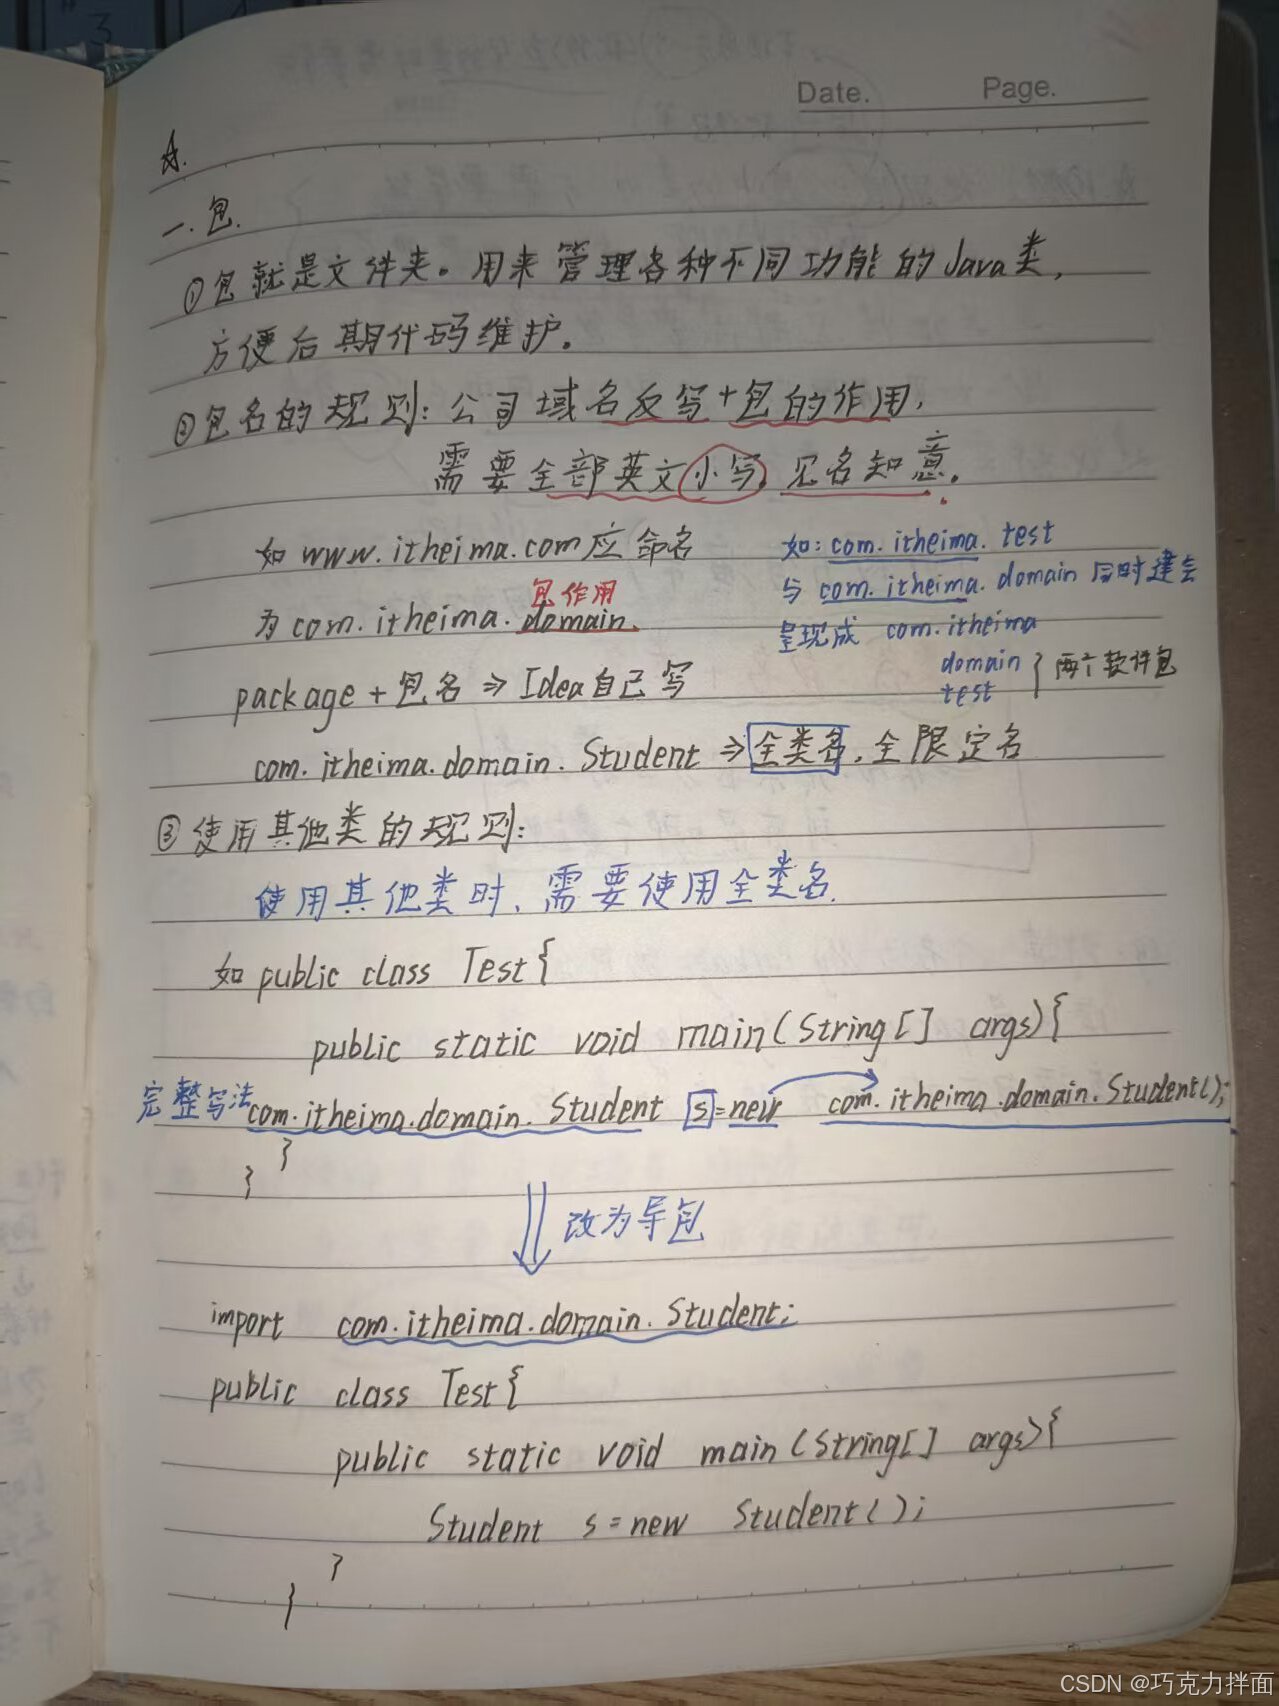 Date. Page.
☆.
一.包.
①包就是文件夹。用来管理各种不同功能的Java类,
方便后期代码维护。
②包名的规则:公司域名反写+包的作用,
需要全部英文小写,见名知意。
如www.itheima.com应命名
包作用
为com.itheima.domain.
如:com.itheima.test
与com.itheima.domain同时建会
呈现成 com.itheima
domain
test
}两个软件包
package+包名⇒Idea自己写
com.itheima.domain.Student⇒全类名,全限定名
③使用其他类的规则:
使用其他类时,需要使用全类名.
如public class Test{
public static void main(String[] args){
完整写法com.itheima.domain.Student s=new com.itheima.domain.Student();
}
}
改为导包
import com.itheima.domain.Student;
public class Test{
public static void main(String[] args){
Student s=new Student();
}
}
CSDN @巧克力拌面